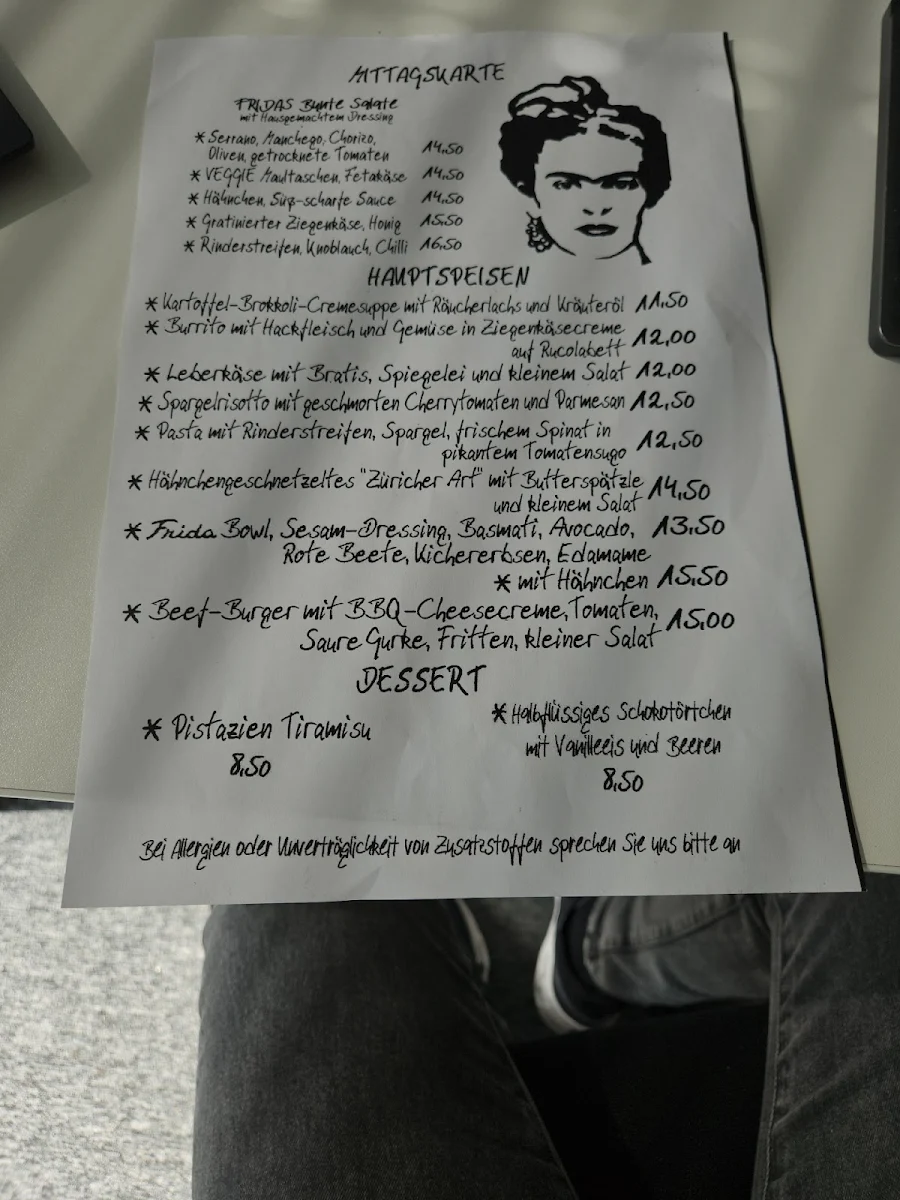 MITTAGSKARTE
FRIDAS Bunte Salate
mit Hausgemachtem Dressing
* Serrano, Manchego, Chorizo,
Oliven, getrocknete Tomaten 14,50
* VEGGIE Maultaschen, Fetakäse 14,50
* Hähnchen, Süß-scharfe Sauce 14,50
* Gratinierter Ziegenkäse, Honig 15,50
* Rinderstreifen, Knoblauch, Chilli 16,50
HAUPTSPEISEN
* Kartoffel-Brokkoli-Cremesuppe mit Räucherlachs und Kräuteröl 11,50
* Burrito mit Hackfleisch und Gemüse in Ziegenkäsecreme
auf Rucolabett 12,00
* Leberkäse mit Bratis, Spiegelei und kleinem Salat 12,00
* Spargelrisotto mit geschmorten Cherrytomaten und Parmesan 12,50
* Pasta mit Rinderstreifen, Spargel, frischem Spinat in
pikantem Tomatensugo 12,50
* Hähnchengeschnetzeltes "Züricher Art" mit Butterspätzle
und kleinem Salat 14,50
* Frida Bowl, Sesam-Dressing, Basmati, Avocado, 13,50
Rote Beete, Kichererbsen, Edamame
* mit Hähnchen 15,50
* Beef-Burger mit BBQ-Cheesecreme, Tomaten,
Saure Gurke, Fritten, kleiner Salat 15,00
DESSERT
* Pistazien Tiramisu
8,50
* Halbflüssiges Schokotörtchen
mit Vanilleeis und Beeren
8,50
Bei Allergien oder Unverträglichkeit von Zusatzstoffen sprechen Sie uns bitte an